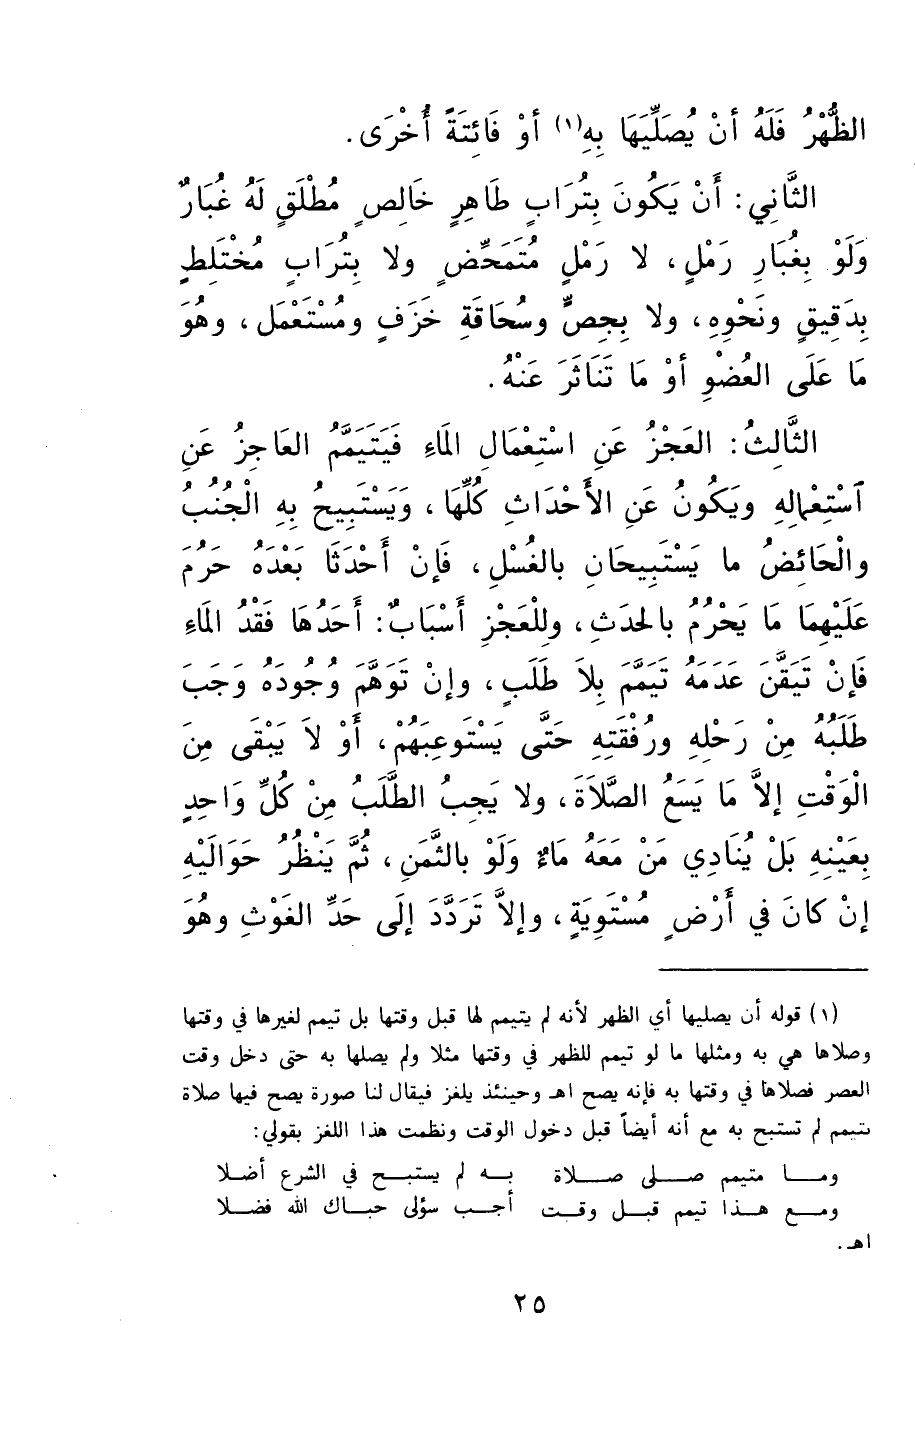 الظُّهْرُ فَلَهُ أنْ يُصَلِّيَهَا بِهِ(١) أوْ فَائِتَةً أُخْرَى .
الثَّانِي : أَنْ يَكُونَ بِتُرَابٍ طَاهِرٍ خَالِصٍ مُطْلَقٍ لَهُ غُبَارٌ
وَلَوْ بِغُبَارِ رَمْلٍ ، لا رَمْلٍ مُتَمَحِّضٍ ولا بِتُرَابٍ مُخْتَلِطٍ
بِدَقِيقٍ ونَحْوِهِ ، ولا بِجِصٍّ وسُحَاقَةِ خَزَفٍ ومُسْتَعْمَلٍ ، وهُوَ
مَا عَلَى العُضْوِ أوْ مَا تَنَاثَرَ عَنْهُ .
الثَّالِثُ : العَجْزُ عَنِ اسْتِعْمَالِ المَاءِ فَيَتَيَمَّمُ العَاجِزُ عَنِ
آسْتِعْمالِهِ ويَكُونُ عَنِ الأَحْدَاثِ كُلِّهَا ، وَيَسْتَبِيحُ بِهِ الْجُنُبُ
والْحَائِضُ ما يَسْتَبِيحَانِ بالغُسْلِ ، فَإنْ أَحْدَثَا بَعْدَهُ حَرُمَ
عَلَيْهِمَا مَا يَحْرُمُ بالحَدَثِ ، ولِلْعَجْزِ أَسْبَابٌ : أَحَدُهَا فَقْدُ المَاءِ
فَإنْ تَيَقَّنَ عَدَمَهُ تَيَمَّمَ بِلاَ طَلَبٍ ، وإنْ تَوَهَّمَ وُجُودَهُ وَجَبَ
طَلَبُهُ مِنْ رَحْلِهِ ورُفْقَتِهِ حَتَّى يَسْتَوعِبَهُمْ ، أَوْ لاَ يَبْقَى مِنَ
الْوَقْتِ إلاَّ مَا يَسَعُ الصَّلاَةَ ، ولا يَجِبُ الطَّلَبُ مِنْ كُلِّ وَاحِدٍ
بِعَيْنِهِ بَلْ يُنَادِي مَنْ مَعَهُ مَاءٌ وَلَوْ بالثَّمَنِ ، ثُمَّ يَنْظُرُ حَوَالَيْهِ
إنْ كانَ فِي أَرْضٍ مُسْتَوِيَةٍ ، وإلاَّ تَرَدَّدَ إلَى حَدِّ الغَوْثِ وهُوَ
(١) قوله أن يصليها أي الظهر لأنه لم يتيمم لها قبل وقتها بل تيمم لغيرها في وقتها
وصلاها هي به ومثلها ما لو تيمم للظهر في وقتها مثلا ولم يصلها به حتى دخل وقت
العصر فصلاها في وقتها به فإنه يصح اهـ وحينئذ يلغز فيقال لنا صورة يصح فيها صلاة
بتيمم لم تستبح به مع أنه أيضاً قبل دخول الوقت ونظمت هذا اللغز بقولي :
ومـــا متيمم صـــلى صـــلاة بـــه لم يستبـــح في الشرع أصـلا
ومـــع هـــذا تيمم قبـــل وقـــت أجـــب سؤلي حبـــاك الله فضـــلا
اهـ .
٢٥